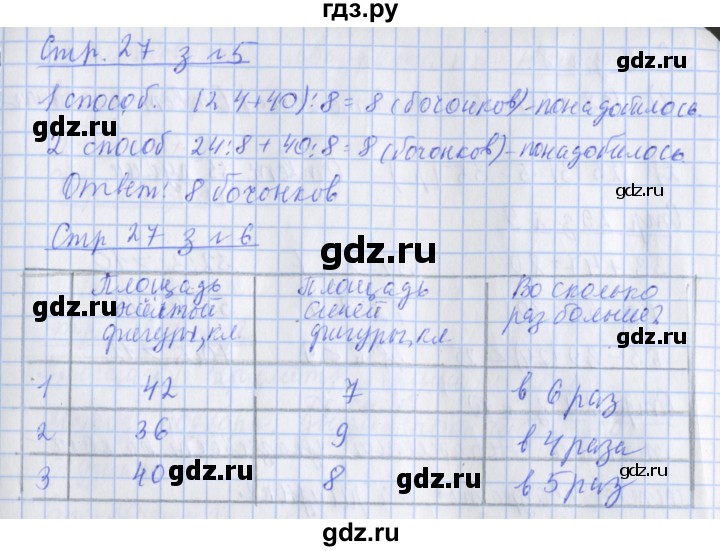 гдз.ру
Стр. 27 з №5
1 способ. (24+40):8=8 (бочонков)-понадобилось.
2 способ 24:8+40:8=8 (бочонков)-понадобилось
Ответ: 8 бочонков
Стр 27 з №6
Площадь жёлтой фигуры, кл. Площадь синей фигуры, кл. Во сколько раз больше?
1 42 7 в 6 раз
2 36 9 в 4 раза
3 40 8 в 5 раз
gdz.ru
gdz.ru
gdz.ru
gdz.ru
gdz.ru
gdz.ru
gdz.ru
gdz.ru
gdz.ru
gdz.ru
gdz.ru
gdz.ru